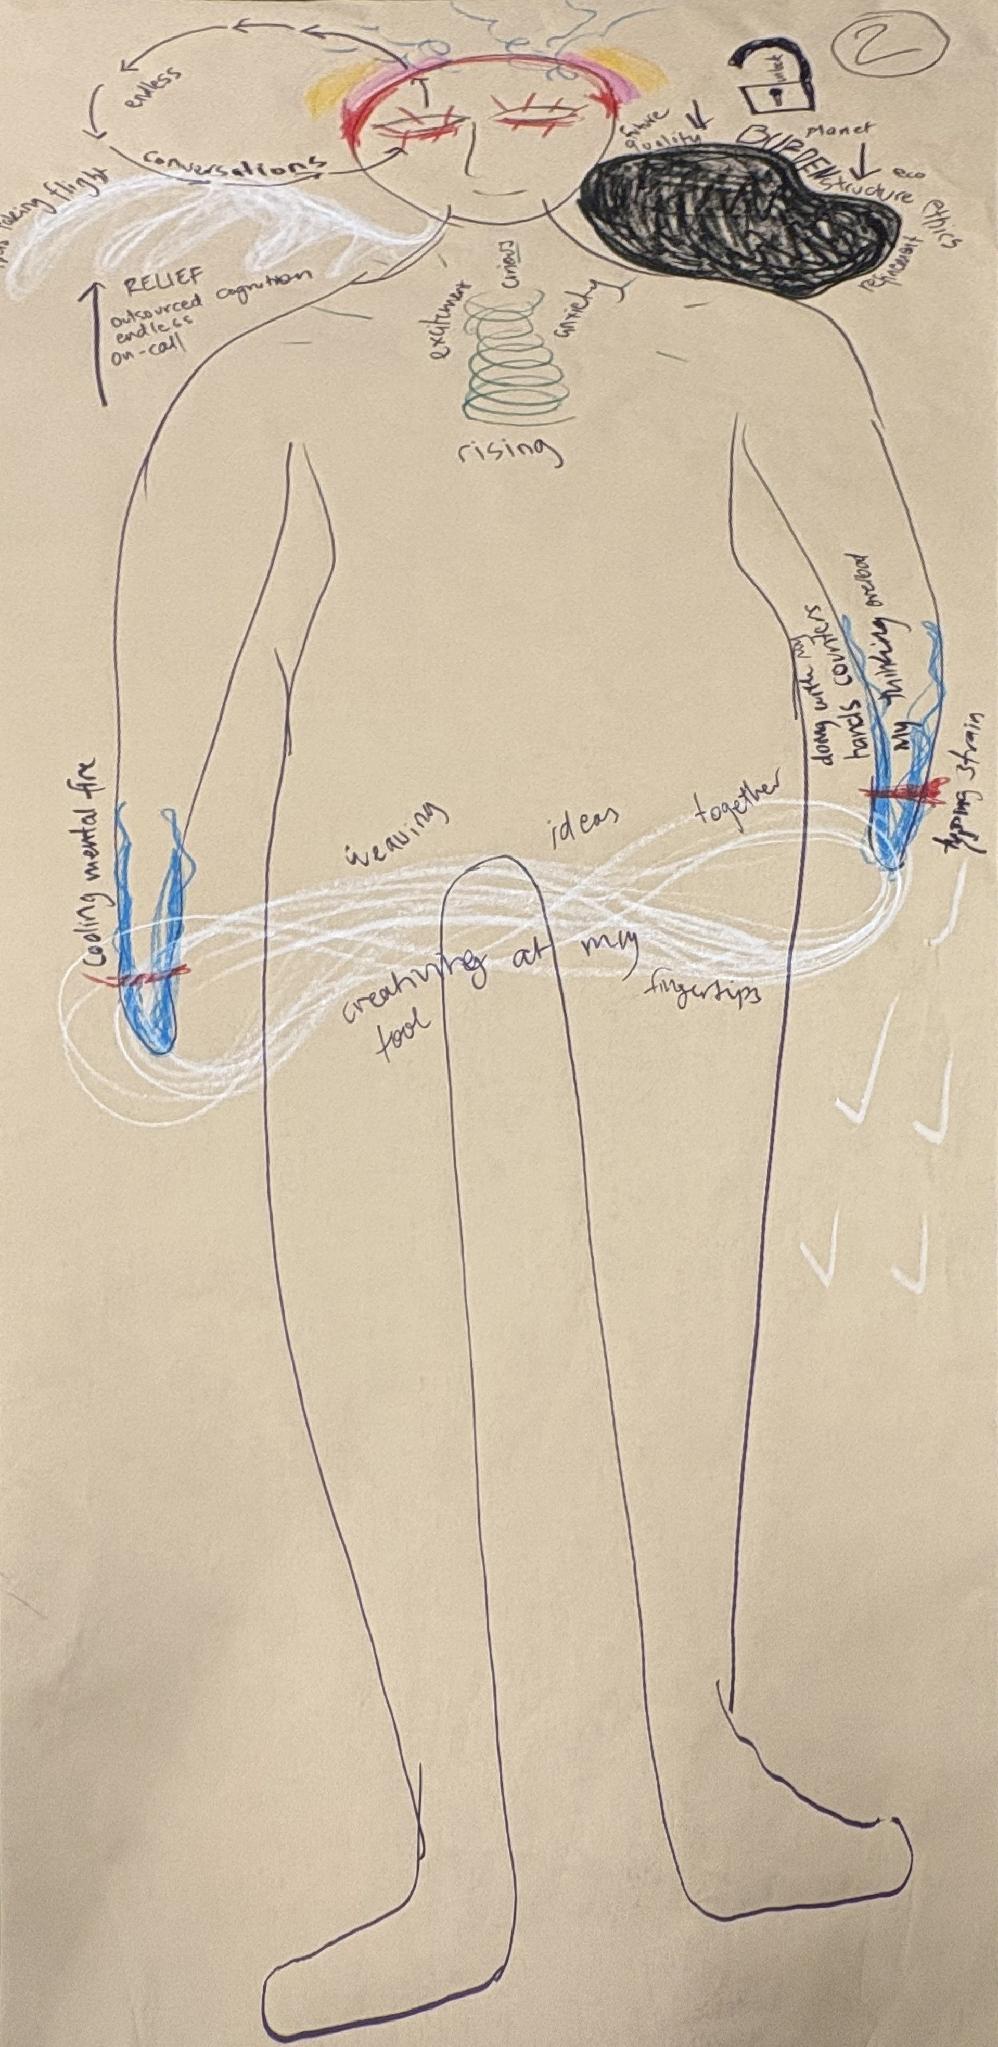 2
unlock
endless
conversations
taking flight
RELIEF
outsourced cognition
endless
on-call
future
quality
BURDEN
Planet
structure
eco
ethics
excitement
curious
anxiety
rising
doing with my
hands counters
My thinking overload
typing strain
Cooling mental fire
weaving ideas together
creativing at my fingertips
tool